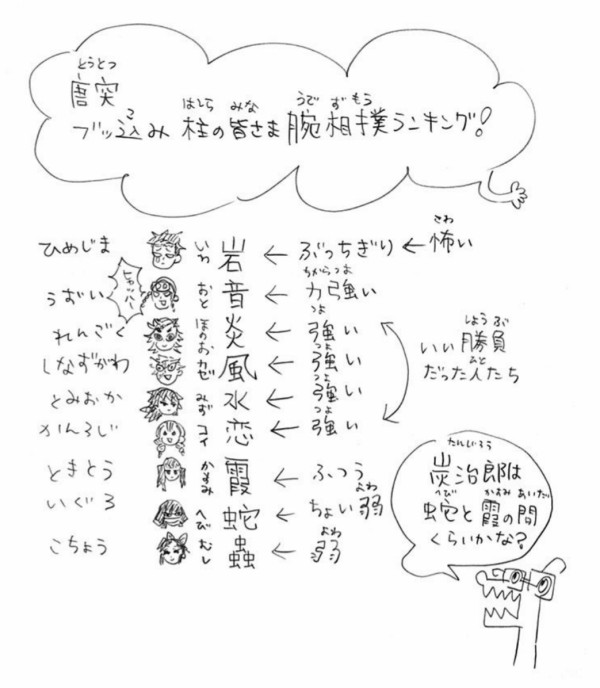 とうとつ
唐突
はしら みな うで ずもう
ブッ込み 柱の皆さま 腕相撲ランキング!
ひめじま いわ 岩 ← ぶっちぎり ← 怖い
さわ
ヒャッハー
うずい おと 音 ← 力強い
ちからつよ
れんごく ほのお 炎 ← 強い
つよ
しなずがわ カゼ 風 ← 強い
つよ
とみおか みず 水 ← 強い
つよ
かんろじ コイ 恋 ← 強い
つよ
しょうぶ
いい勝負
ひと
だった人たち
ときとう かすみ 霞 ← ふつう
いぐろ へび 蛇 ← ちょい弱
よわ
こちょう むし 蟲 ← 弱
よわ
たんじろう
炭治郎は
へび かすみ あいだ
蛇と霞の間
くらいかな?